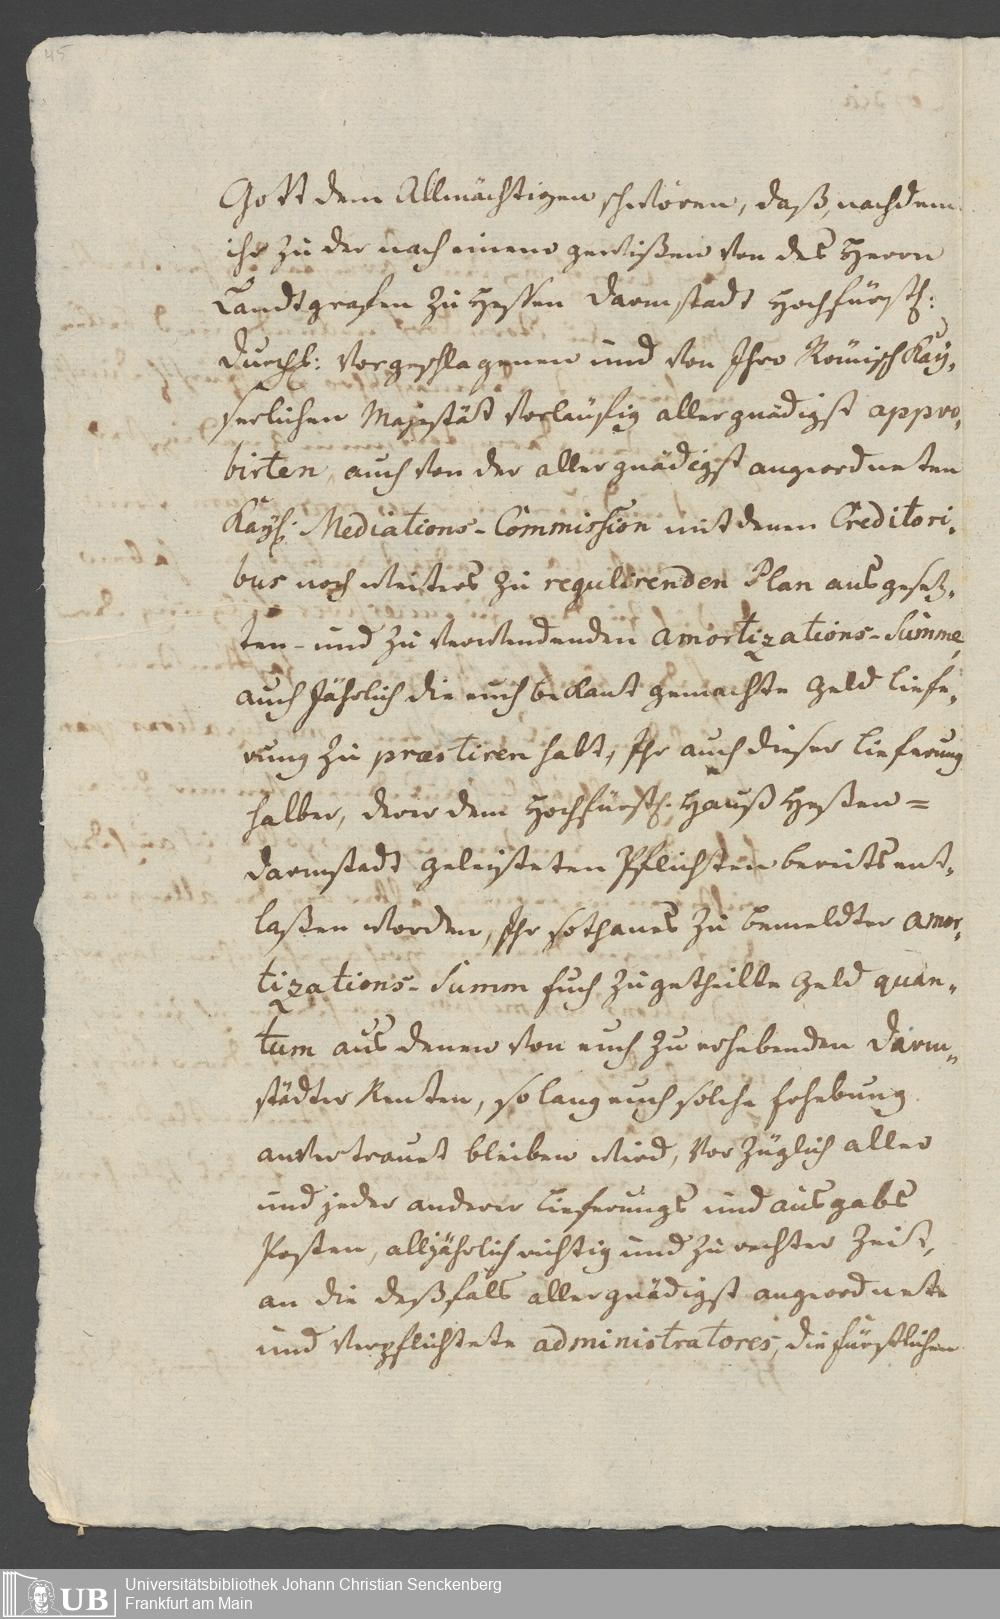 45
Gott dem Allmächtigen schwören, daß, nachdem
ihr zu der nach einem gewißen von des Herrn
Landtgrafen zu Hessen Darmstadt Hochfürstl:
Durchl: vorgeschlagenen und von Ihro Römisch Kay„
serlichen Majestät vorläufig allergnädigst appro„
birten, auch von der allergnädigst angeordneten
Kayl: Mediations-Commission mit denen Creditori„
bus noch weiters zu regulirenden Plan ausgesetz„
ten- und zu verwendenden amortizations-Summe,
auch Jährlich die euch bekant gemachte Geld Liefe„
rung zu præstiren habt, Ihr auch dieser Lieferung
halber, derer dem Hochfürstl. Hauß Heßen=
Darmstadt geleisteten Pflichten bereits ent„
laßen worden, Ihr sothanes zu bemeldter amor„
tizations-Summ Euch zugetheilte Geld quan„
tum aus denen von euch zu erhebenden Darm„
städter Renten, so lang euch solche Erhebung
anvertrauet bleiben wird, vorzüglich aller
und jeder anderer Lieferungs und ausgabs
Posten, alljährlich richtig und zu rechter Zeit,
an die deßfals allergnädigst angeordnete
und verpflichtete administratores, die fürstlichen
UB
Universitätsbibliothek Johann Christian Senckenberg
Frankfurt am Main